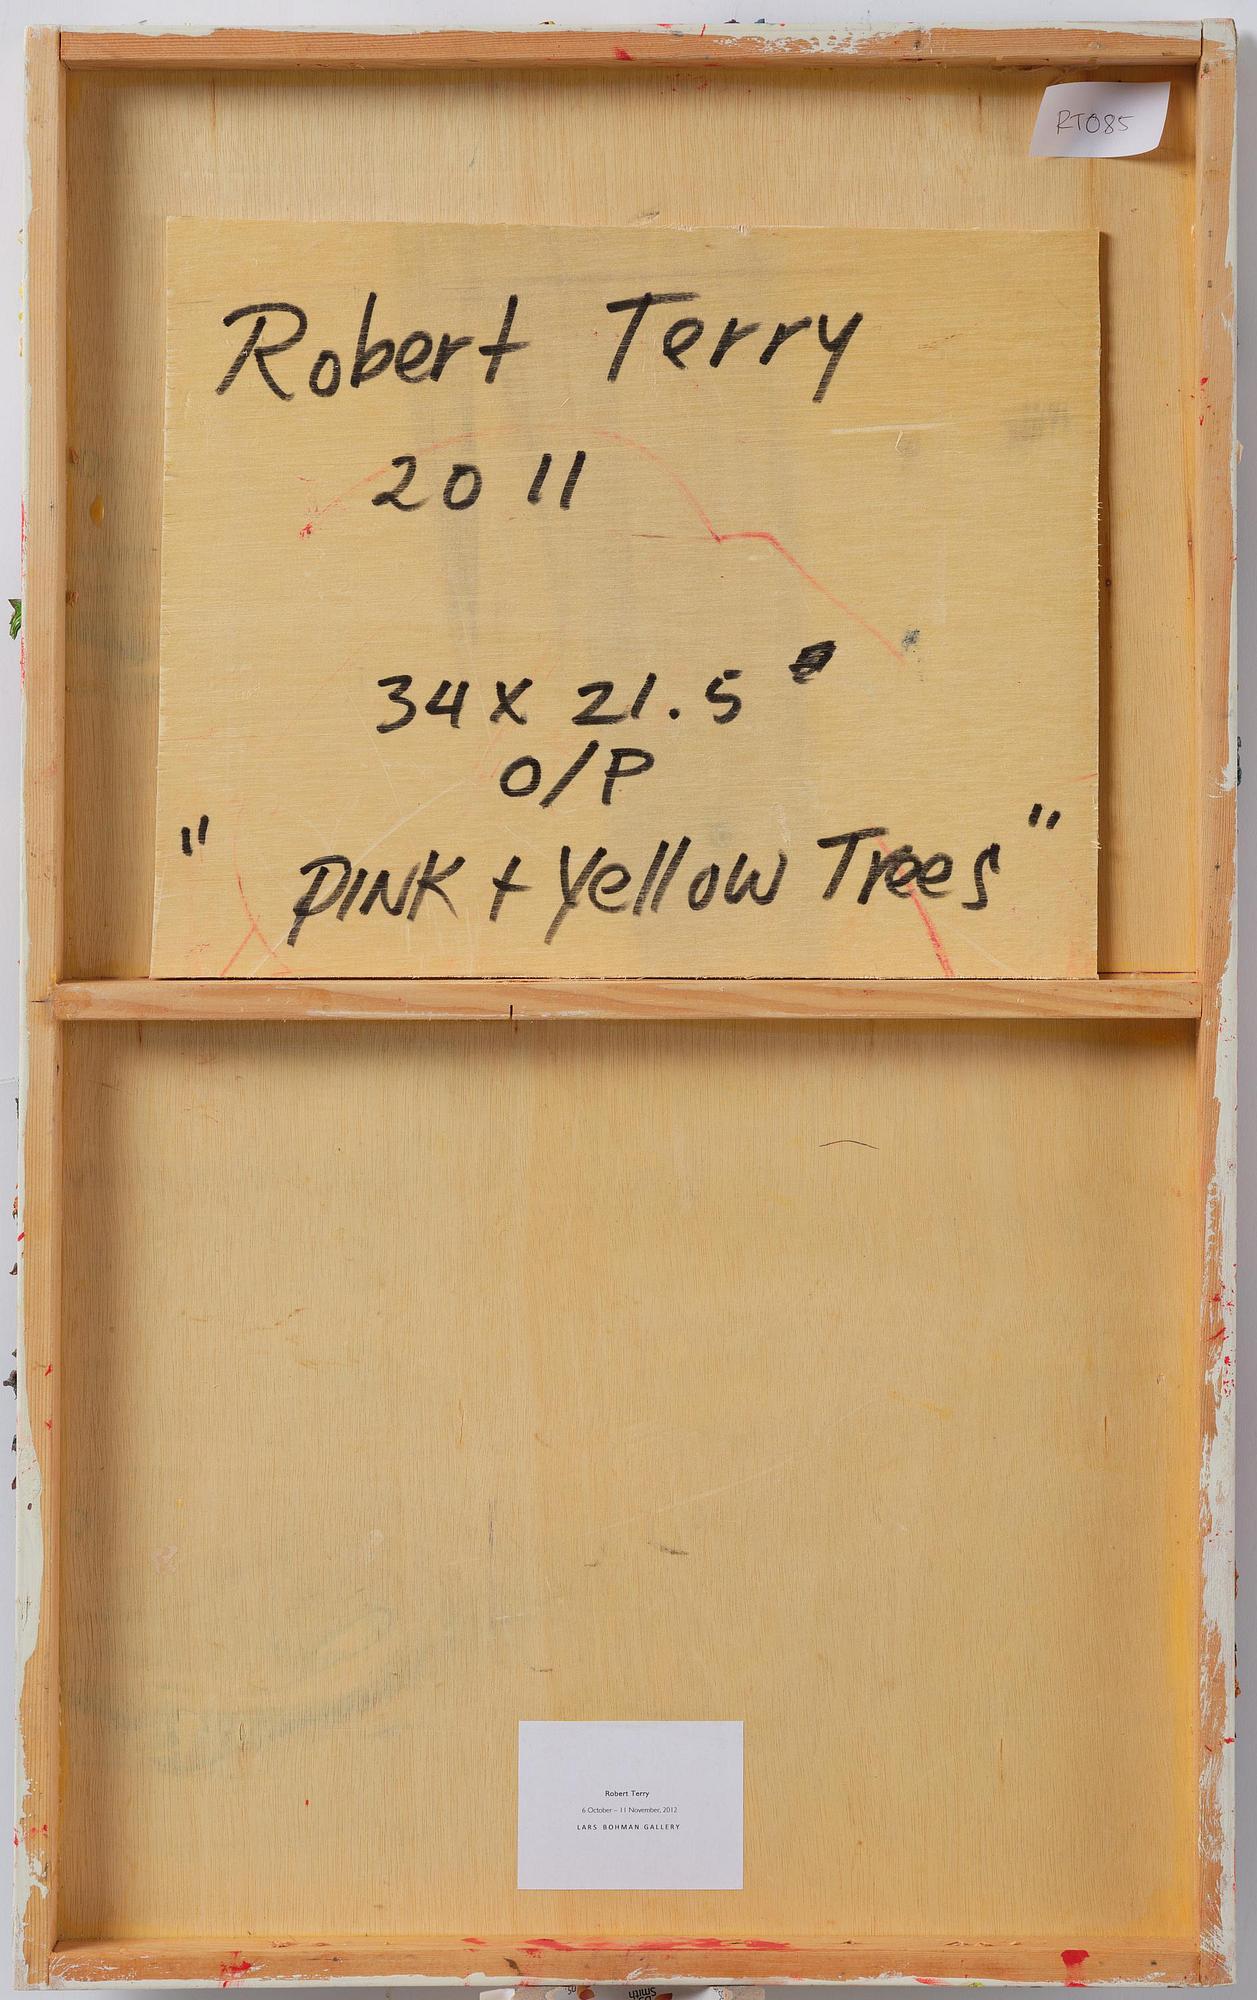 RT085
Robert Terry
2011
34 x 21.5
O/P
" PINK + Yellow Trees "
Robert Terry
6 October – 11 November, 2012
LARS BOHMAN GALLERY
Smith